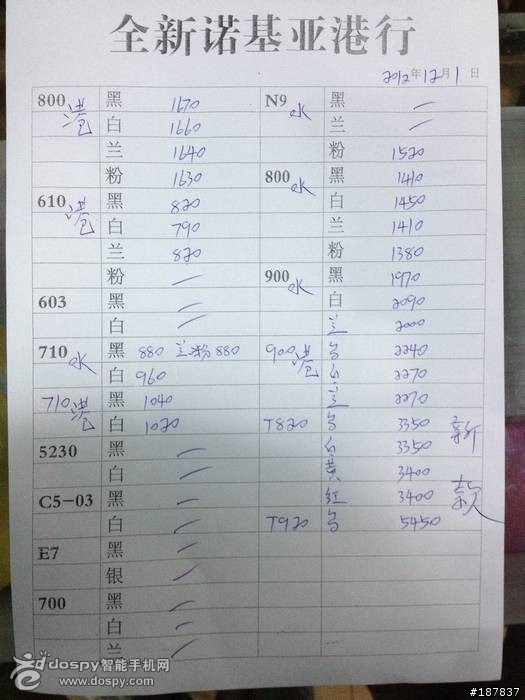 全新诺基亚港行
2012年12月1日
800 港包 黑 1670 N9 水 黑 —
白 1660 兰 —
兰 1640 粉 1520
粉 1630 800 水 黑 1410
610 港包 黑 820 白 1450
白 790 兰 1410
兰 820 粉 1380
粉 — 900 水 黑 1970
603 黑 — 白 2090
白 — 兰 2000
710 水 黑 880 兰粉 880 900 港包 2240
白 960 白 2270
710 港包 黑 1040 兰 2270
白 1020 T820 3350 新
5230 黑 — 白 3350
白 — 黄 3400
C5-03 黑 — 红 3400 款
白 — T920 5450
E7 黑 —
银 —
700 黑 —
白 —
兰 —
dospy智能手机网
dospy.com
#187837